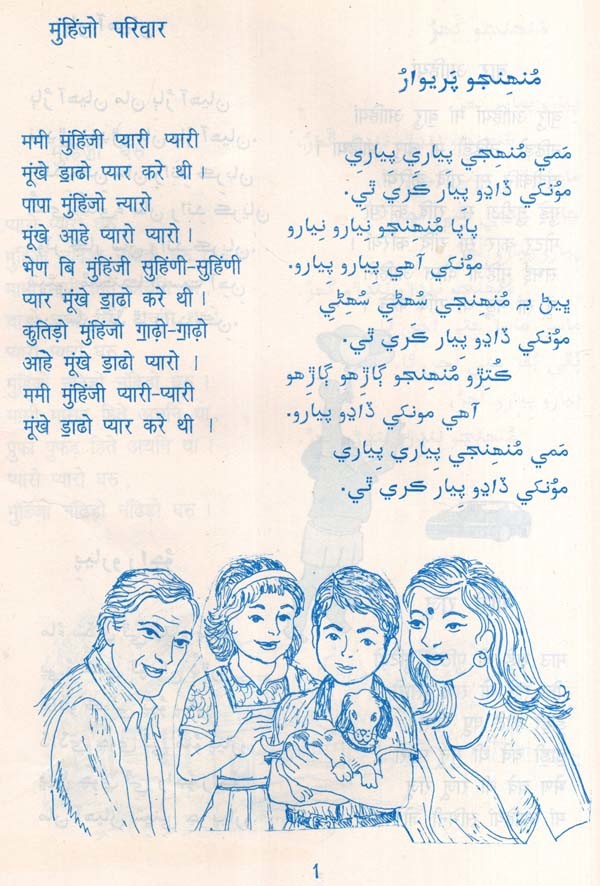 मुंहिंजो परिवार
ममी मुंहिंजी प्यारी प्यारी
मूंखे ॾाढो प्यार करे थी ।
पापा मुंहिंजो न्यारो
मूंखे आहे प्यारो प्यारो ।
भेण बि मुंहिंजी सुहिंणी-सुहिंणी
प्यार मूंखे ॾाढो करे थी ।
कुतिड़ो मुंहिंजो ॻाढ़ो-ॻाढ़ो
आहे मूंखे ॾाढो प्यारो ।
ममी मुंहिंजी प्यारी-प्यारी
मूंखे ॾाढो प्यार करे थी ।
مُنهنجو پَريوارُ
مَمي مُنهنجي پياري پياري
مُونکي ڏاڍو پيار ڪري ٿي.
پاپا مُنهنجو نِيارو نِيارو
مُونکي آهي پِيارو پِيارو.
ڀيڻ بہ مُنهنجي سُهڻي سُهڻي
مُونکي ڏاڍو پيار ڪَري ٿي.
ڪُتِڙو مُنهنجو ڳاڙهو ڳاڙهو
آهي مونکي ڏاڍو پيارو.
مَمي مُنهنجي پِياري پياري
مُونکي ڏاڍو پِيار ڪري ٿي.
1